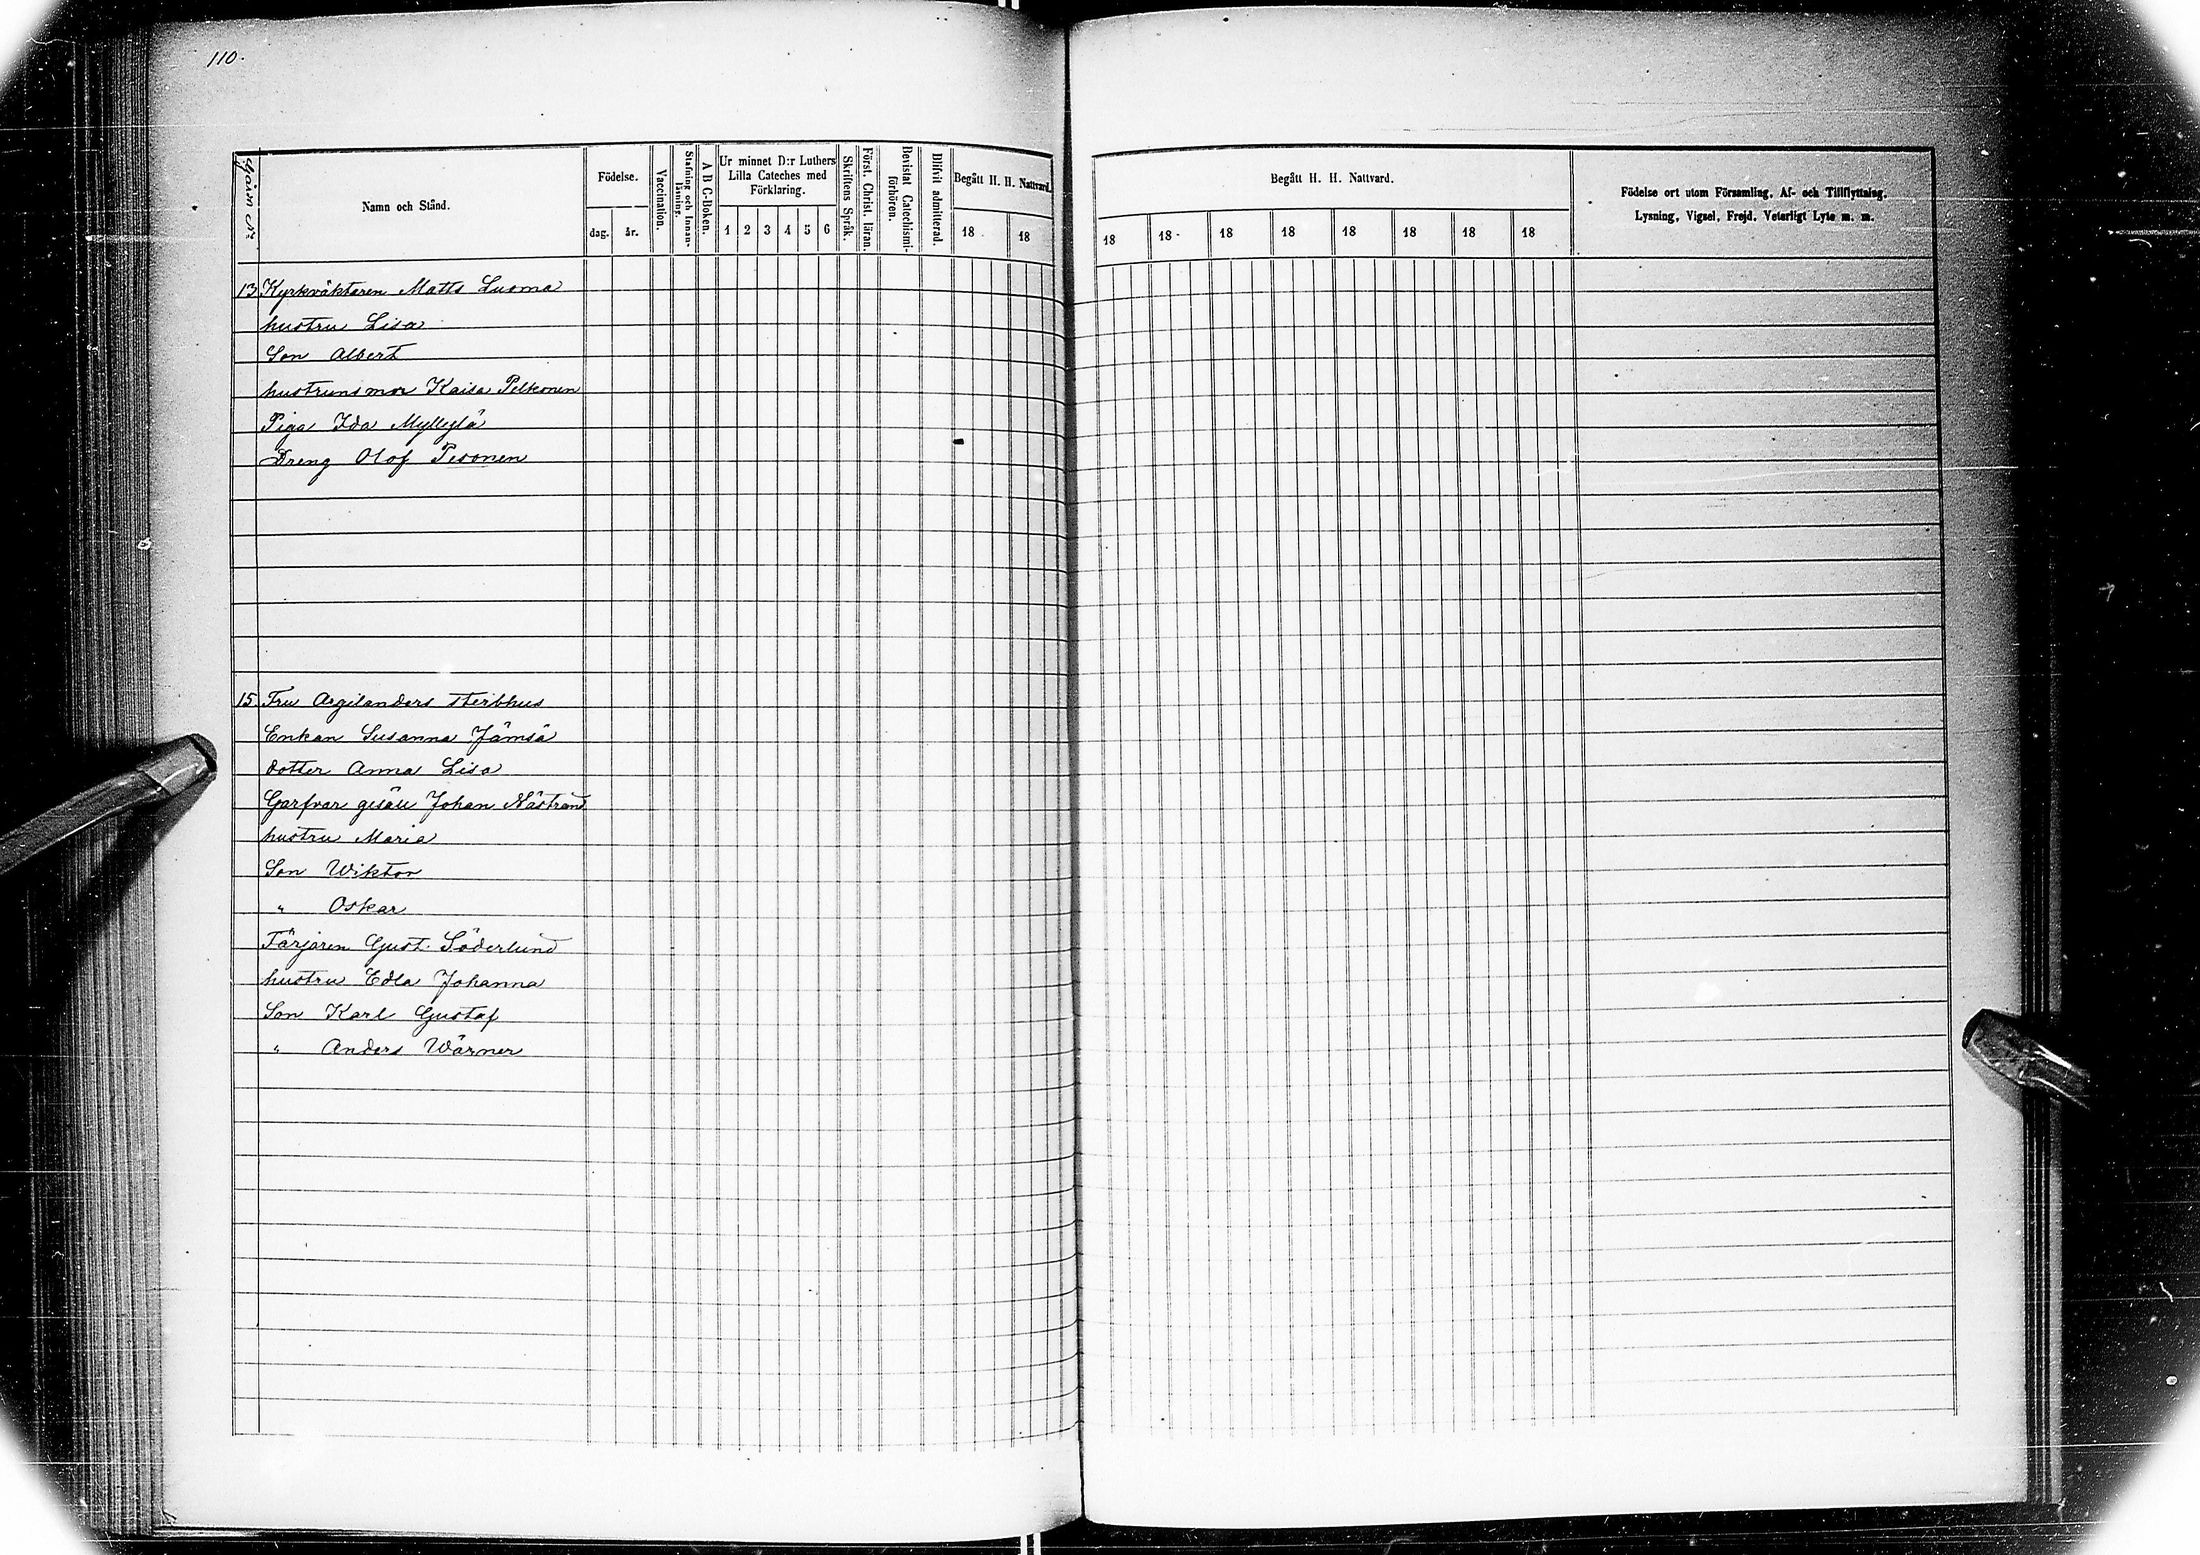 110.
Gårds No
Namn och Stånd.
Födelse.
dag. år.
Vaccination.
Stafning och Innan-
läsning.
A B C-Boken.
Ur minnet D:r Luthers
Lilla Cateches med
Förklaring.
1 2 3 4 5 6
Skriftens Språk.
Först. Christ. läran.
Bevistat Catechismi-
förhören.
Blifvit admitterad.
Begått H. H. Nattvard.
18 18
Begått H. H. Nattvard.
18 18 18 18 18 18 18 18
Födelse ort utom Församling, Af- och Tillflyttning,
Lysning, Vigsel, Frejd. Veterligt Lyte m. m.
13 Kyrkväktaren Matts Luoma
hustru Lisa
Son Albert
hustruns mor Kaisa Pelkonen
Piga Ida Myllylä
Dreng Olof Pesonen
15. Fru Argelanders sterbhus
Enkan Susanna Jämsä
dotter Anna Lisa
Garfvar gesäll Johan Nästrand
hustru Maria
Son Wiktor
" Oskar
Färjaren Gust. Söderlund
hustru Edla Johanna
Son Karl Gustaf
" Anders Wärner